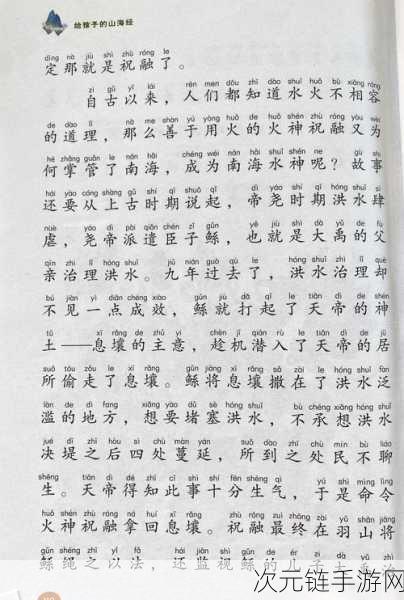 给孩子的山海经
dìng nà jiù shì zhù róng le
定那就是祝融了。
zì gǔ yǐ lái rén men dōu zhī dào shuǐ huǒ bù xiāng róng
自古以来，人们都知道水火不相容
de dào lǐ nà me shàn yú yòng huǒ de huǒ shén zhù róng yòu wèi
的道理，那么善于用火的火神祝融又为
hé zhǎng guǎn le nán hǎi chéng wéi nán hǎi shuǐ shén ne gù shi
何掌管了南海，成为南海水神呢？故事
hái yào cóng shàng gǔ shí qī shuō qǐ dì yáo shí qī hóng shuǐ sì
还要从上古时期说起，帝尧时期洪水肆
nüè yáo dì pài qiǎn chén zǐ gǔn yě jiù shì dà yǔ de fù
虐，尧帝派遣臣子鲧，也就是大禹的父
qīn zhì lǐ hóng shuǐ jiǔ nián guò qù le hóng shuǐ zhì lǐ què
亲治理洪水。九年过去了，洪水治理却
bú jiàn yì diǎn chéng xiào gǔn jiù dǎ qǐ le tiān dì de shén
不见一点成效，鲧就打起了天帝的神
tǔ xī rǎng de zhǔ yi chèn jī qián rù le tiān dì de jū
土——息壤的主意，趁机潜入了天帝的居
suǒ tōu zǒu le xī rǎng gǔn jiāng xī rǎng sǎ zài le hóng shuǐ fàn
所偷走了息壤。鲧将息壤撒在了洪水泛
làn de dì fang xiǎng yào dǔ sè hóng shuǐ bù chéng xiǎng hóng shuǐ
滥的地方，想要堵塞洪水，不承想洪水
jué dī zhī hòu sì chù màn yán suǒ dào zhī chù mín bù liáo
决堤之后四处蔓延，所到之处民不聊
shēng tiān dì dé zhī cǐ shì shí fēn shēng qì yú shì mìng lìng
生。天帝得知此事十分生气，于是命令
huǒ shén zhù róng ná huí xī rǎng zhù róng zuì zhōng zài yǔ shān jiāng
火神祝融拿回息壤。祝融最终在羽山将
gǔn shéng zhī yǐ fǎ hái jiān shì gǔn de ér zi dà yǔ zhì
鲧绳之以法，还监视鲧的儿子大禹治
次元链手游网